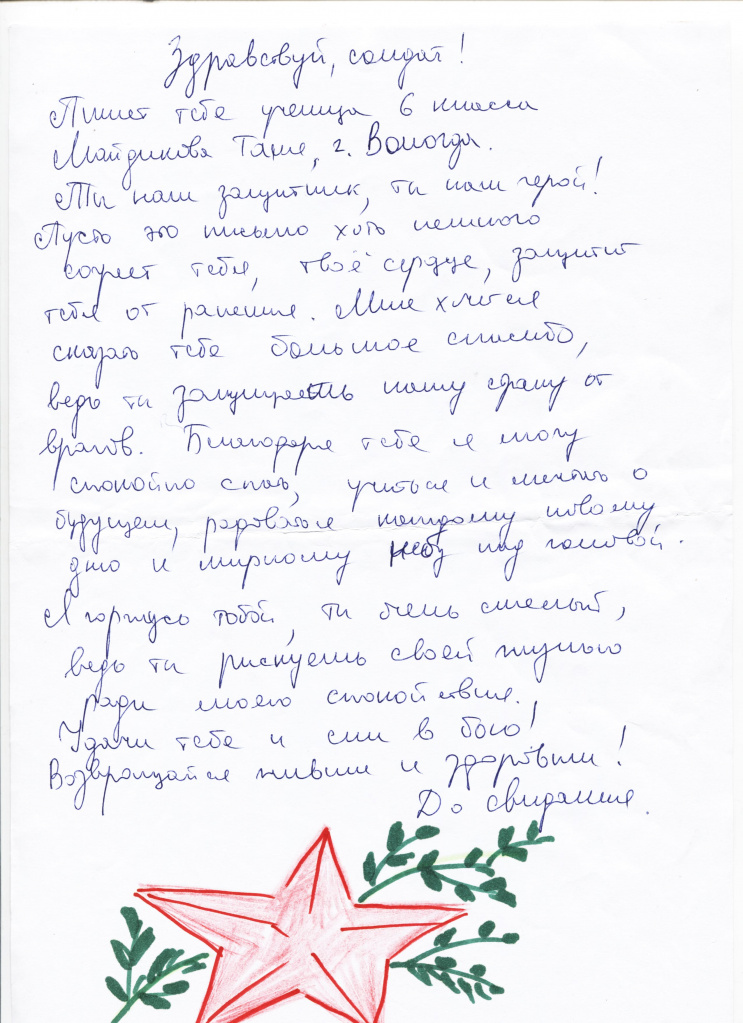 Здравствуй, солдат!
Пишет тебе ученица 6 класса
Майдикова Таня, г. Вологда.
Ты наш защитник, ты наш герой!
Пусть это письмо хоть немного
согреет тебя, твоё сердце, защитит
тебя от ранения. Мне хочется
сказать тебе большое спасибо,
ведь ты защищаешь нашу страну от
врагов. Благодаря тебе я могу
спокойно спать, учиться и мечтать о
будущем, радоваться каждому новому
дню и мирному небу над головой.
Я горжусь тобой, ты очень смелый,
ведь ты рискуешь своей жизнью
ради моего спокойствия.
Удачи тебе и сил в бою!
Возвращайся живым и здоровым!
До свидания.